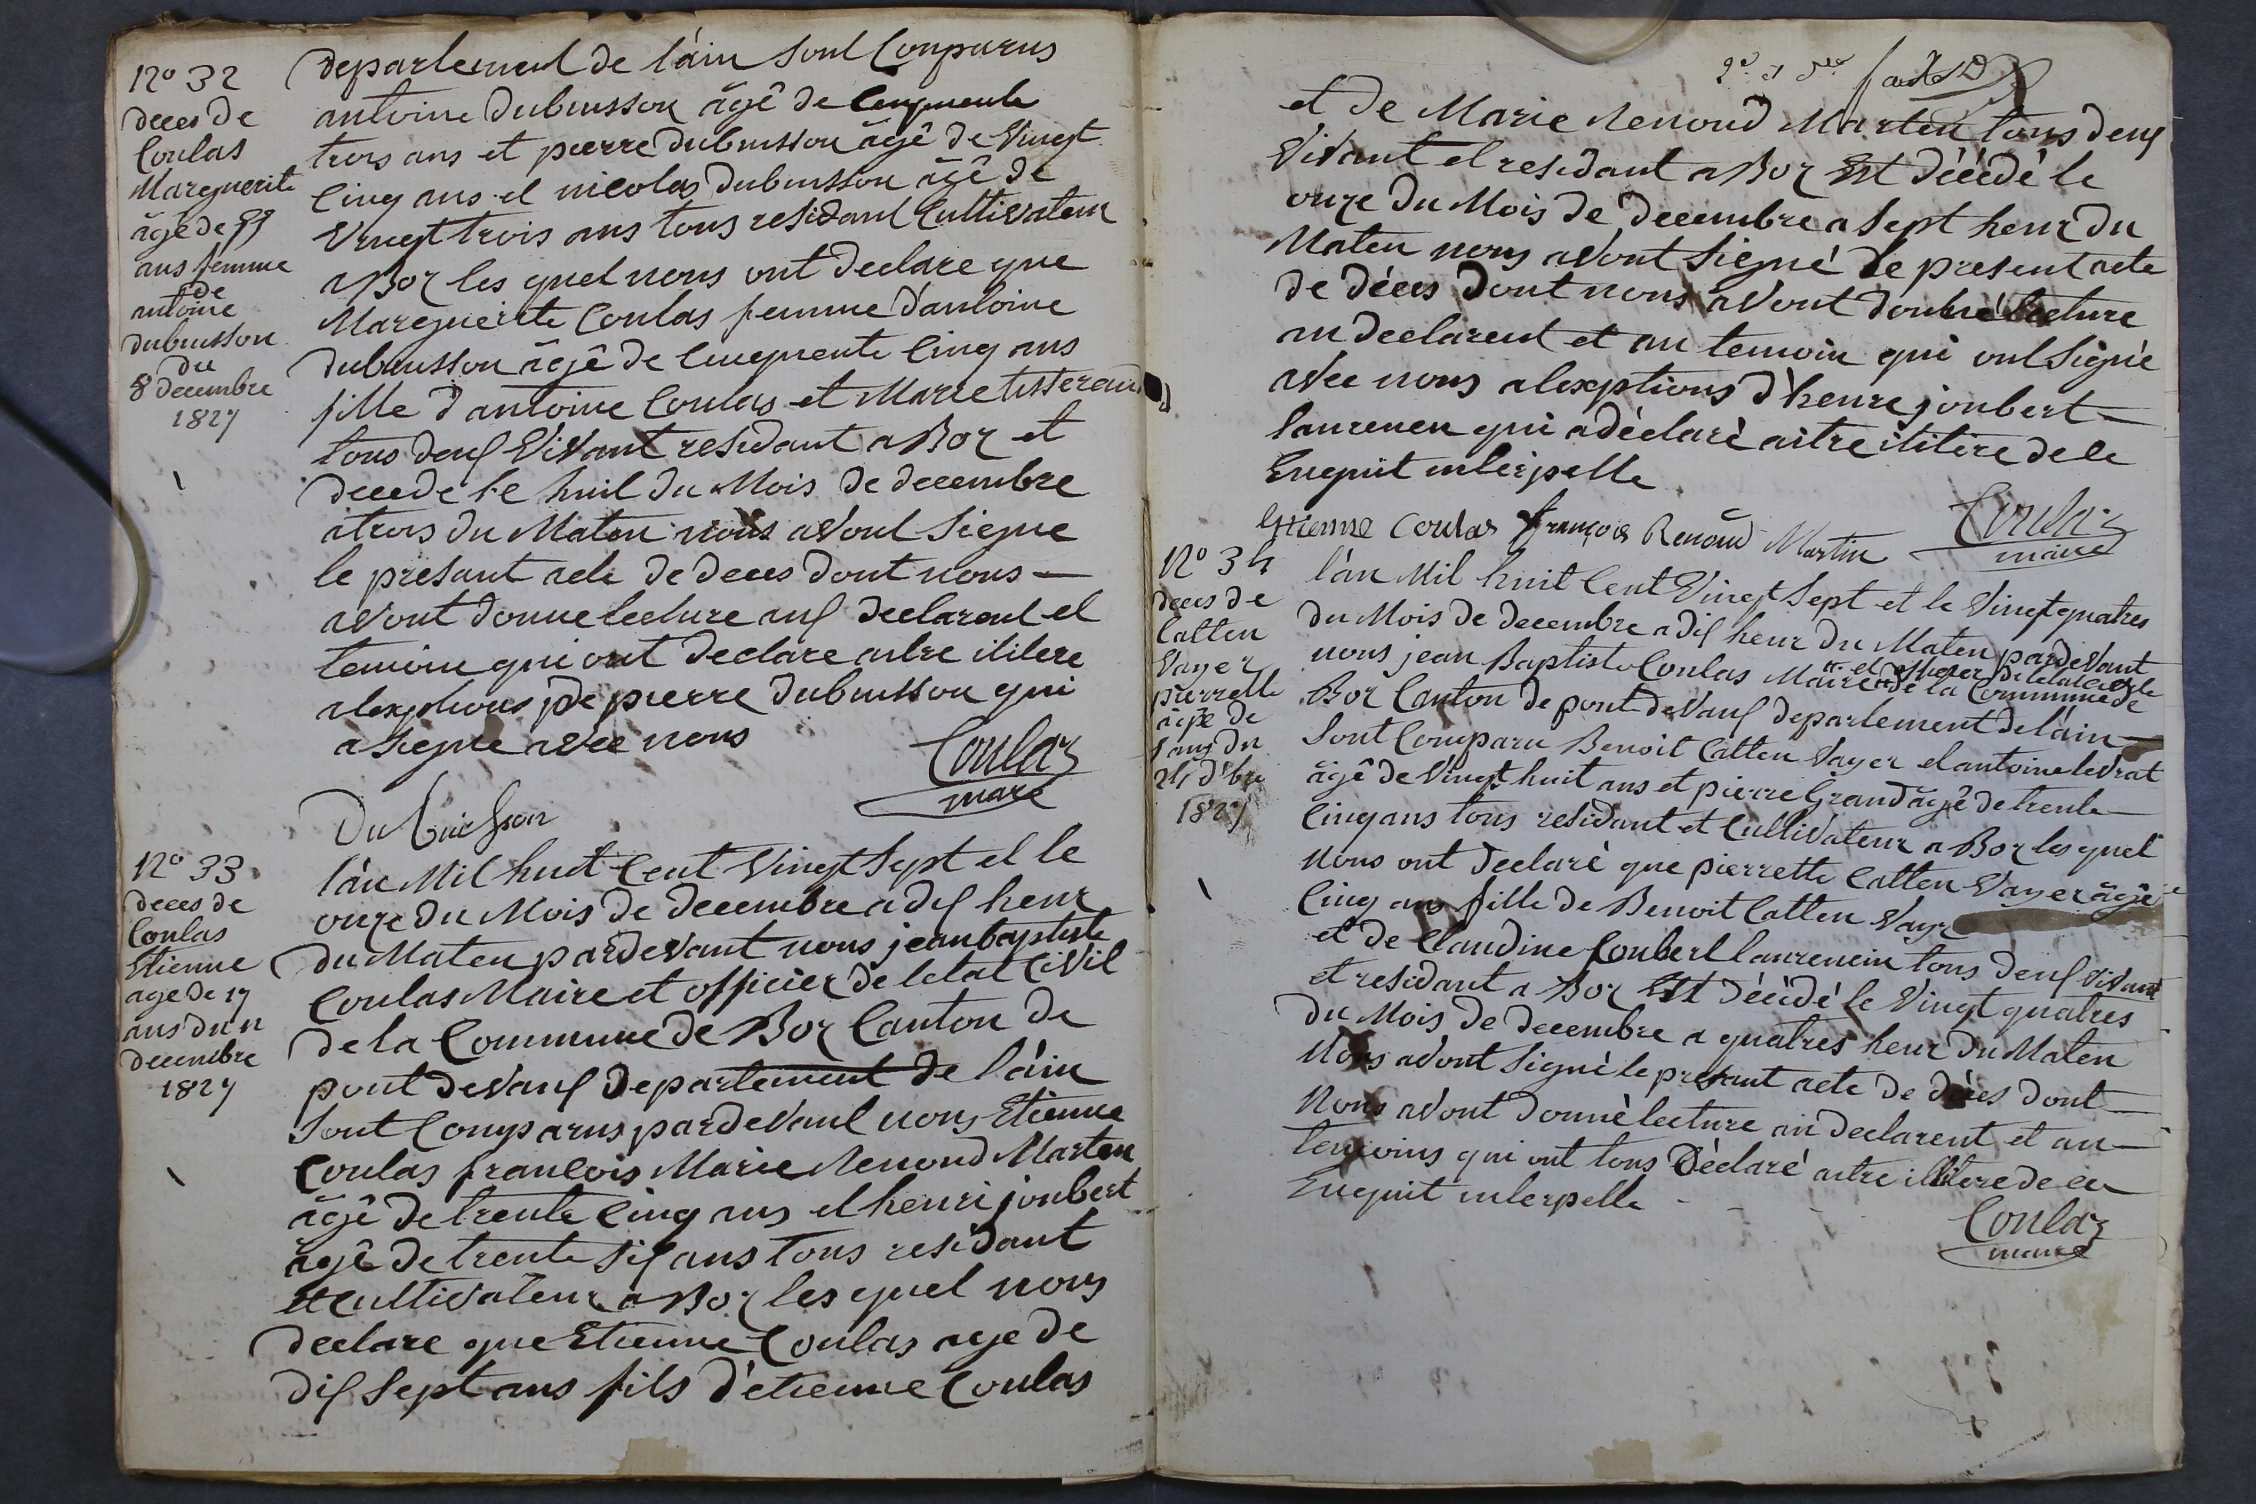 N° 32
deces de
Coulas
Marguerite
âgé de 55
ans femme
de
antoine
dubuisson
du
8 decembre
1827
departement de l'ain sont Conparus
antoine dubuisson âgê de Cinquente
trois ans et pierre dubuisson âgê de Vingt
Cinq ans et nicolas dubuisson âgê de
Vingt trois ans tous residant Cultivateur
a Boz les quel nous ont declare que
Marguerite Coulas femme d'antoine
dubuisson âgê de Cinquente Cinq ans
fille d'antoine Coulas et Marie tisserand
tous deux Vivant residant a Boz et
decede le huit du Mois de decembre
a trois du Maten nous avont signe
le presant acte de deces dont nous
avont donne lecture aux declarent et
temoins qui ont declare aitre ilitere
a lexptions de pierre dubuisson qui
a signe avec nous
Coulas
maire
Dubuisson
N° 33
deces de
Coulas
Etienne
age de 17
ans du 11
decembre
1827
l'an Mil huit Cent Vingt Sept et le
onze du Mois de decembre a dix heur
du Maten pardevant nous jean baptiste
Coulas Maire et officier de letat Civil
de la Commune de Boz Canton de
pont devaux departement de l'ain
Sont Comparus pardevant nous Etienne
Coulas francois Marie Renoud Marten
âgê de trente Cinq ans et henri joubert
âgê de trente six ans tous residant
et Cultivateur a Boz les quel nous
declare que Etienne Coulas age de
dix Sept ans fils d'etienne Coulas
et de Marie Renoud Marten tous deux
Vivant et residant a Boz Est décédé le
onze du Mois de decembre a Sept heur du
Maten nous avont Signé le present acte
de déces dont nous avont donné lecture
au declarent et au temoin qui ont Signé
avec nous a lexptions d'henre joubert
laurenen qui a déclaré aitre ilitere de le
Enquit interpelle
Ettienne Coulas françois Renoud Martin
Coulas
maire
N° 34
deces de
Catten
Vayer
pierrette
agé de
5 ans du
24 dbre
1827
l'an Mil huit Cent Vingt Sept et le Vingt quatres
du Mois de decembre a dix heur du Maten pardevant
nous jean Baptiste Coulas Maire de la Commune de
et officier de letat Civile
Boz Canton de pont de Vaux departement de l'ain
Sont Comparu Benoit Catten Vayer et antoine levrat
âgê de Vingt huit ans et pierre Grand âgê de trente
Cinq ans tous residant et Cultivateur a Boz les quel
Nous ont declaré que pierrette Catten Vayer âgê
Cinq ans fille de Benoit Catten Vayer
et de Claudine Joubert laurenein tous deux vivant
et residant a Boz Est décédé le Vingt quatres
du Mois de decembre a quatres heur du Maten
Nous avont Signé le presant acte de déces dont
Nous avont donné lecture au declarent et au
temoins qui ont tous Déclaré aitre illitere de ce
Enquit interpelle
Coulas
maire